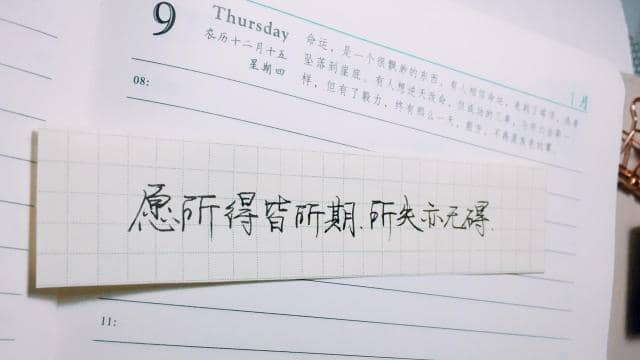 9
Thursday
农历十二月十五
星期四
1月
命运,是一个很飘渺的东西,有人相信命运,
坠落到崖底,有人想逆天改命,但
样,但有了毅力,终有那么一天,
08:
愿所得皆所期、所失亦无碍.
11: